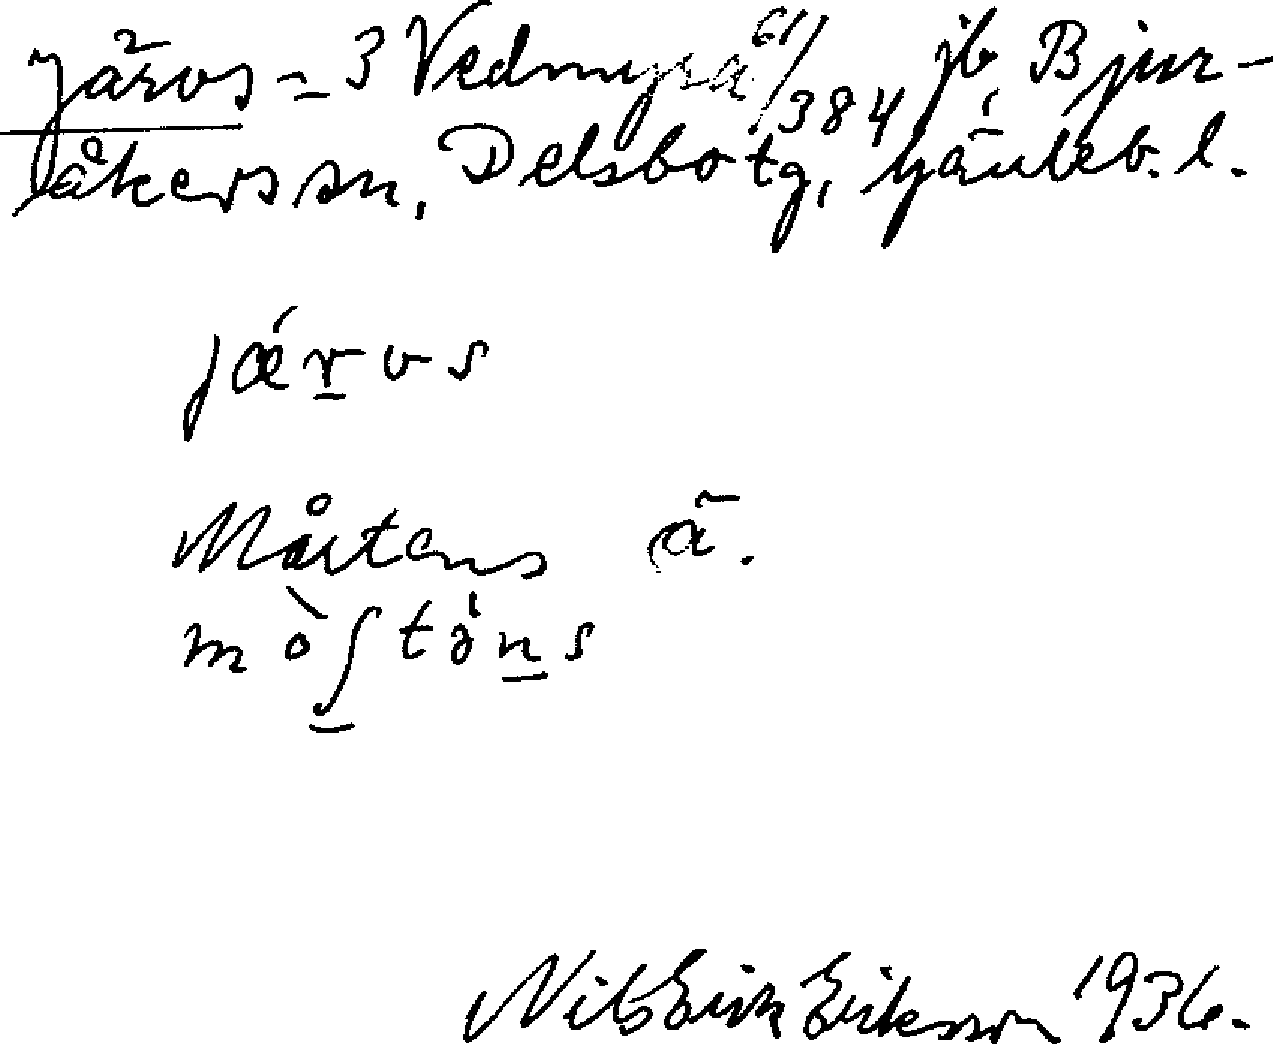 Järvs = 3 Vedmyra 61/384 jb, Bjur-
åkers sn, Delsbo tg, Gävleb. l.
jä́rvs
Mårtens ä.
mòʃtəns
Nils Erik Eriksson 1936.